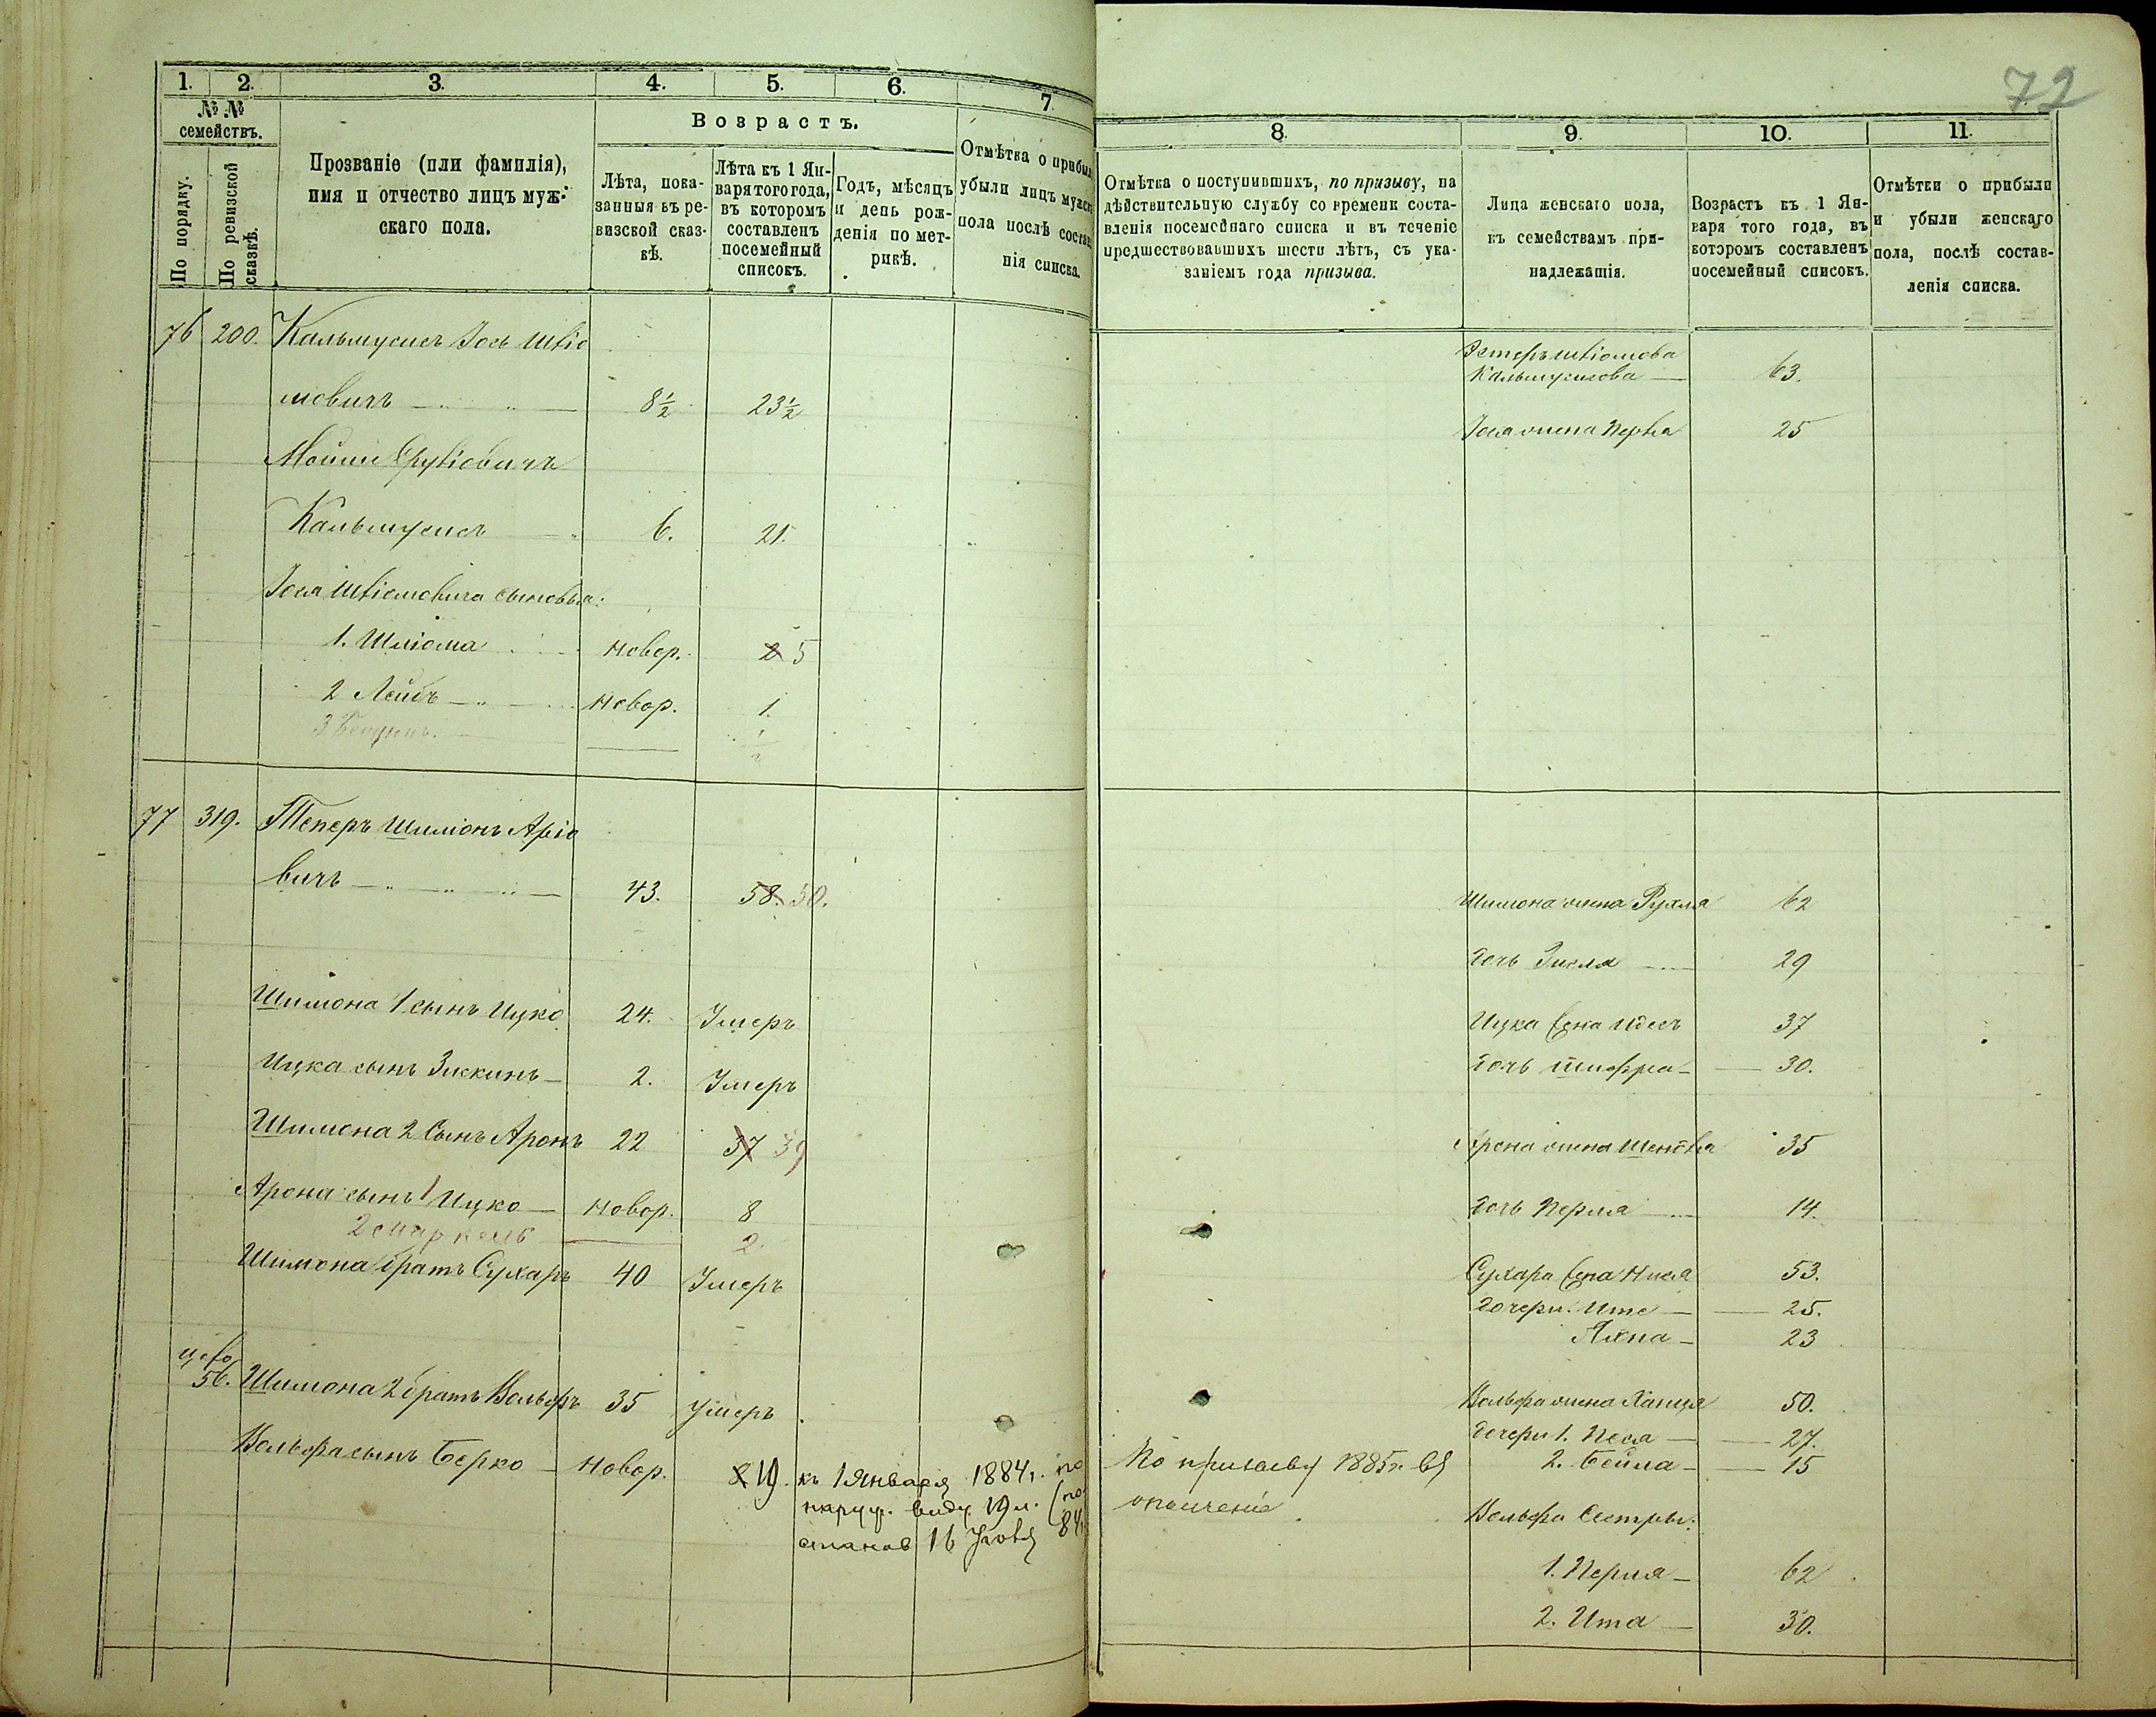 72
1. 2. 3. 4. 5. 6. 7.
№ №
семействъ.
По порядку.
По ревизской
сказкѣ.
Прозваніе (или фамилія),
имя и отчество лицъ муж-
скаго пола.
Возрастъ.
Лѣта, пока-
занныя въ ре-
визской сказ-
кѣ.
Лѣта къ 1 Ян-
варя того года,
въ которомъ
составленъ
посемейный
списокъ.
Годъ, мѣсяцъ
и день рож-
денія по мет-
рикѣ.
Отмѣтка о прибыл
убыли лицъ мужск
пола послѣ состав
нія списка.
76 200. Кальмусисъ Іось
мовичъ 8½ 23½
Кальмусисъ 6. 21.
сыновья:
1. Шліома Новор. 2 5
2 Лейбъ Новор. 1.
3 ½
77 319. Теперъ Шиміонъ Аріо
вичъ 43. 58. 50.
Шимона 1 сынъ Ицко 24. Умеръ
Ицка сынъ Зискинъ 2. Умеръ
Шимона 2 Сынъ Аронъ 22 37 39
Арона сынъ 1 Ицко Новор. 8
2 Маркель 2.
Шимона братъ Сухаръ 40 Умеръ
56. Шимона 2 братъ Вольфъ 35 Умеръ
Вольфа сынъ Берко Новор. 8 19. къ 1 Января 1884 г. по
наруж. виду 19 л. (по
станов 16 84
8. 9. 10. 11.
Отмѣтка о поступившихъ, по призыву, на
дѣйствительную службу со времени соста-
вленія посемейнаго списка и въ теченіе
предшествовавшихъ шести лѣтъ, съ ука-
заніемъ года призыва.
Лица женскаго пола,
къ семействамъ при-
надлежащія.
Возрастъ къ 1 Ян-
варя того года, въ
которомъ составленъ
посемейный списокъ.
Отмѣтки о прибыли
и убыли женскаго
пола, послѣ состав-
ленія списка.
Эстеръ
Кальмусисова 63.
Іося жена 25
Шимона жена Рухля 62
дочь Зисля 29
Ицка жена Идесъ 37
дочь Шифра 30.
Арона жена 35
дочь Перля 14.
Сухара жена Нися 53.
дочери: Ите 25.
Яхна 23
Вольфа жена Ханця 50.
дочери 1. Песя 27.
2. Бейла 15
По призыву 1885 г. въ
ополченіе
Вольфа Сестры:
1. Перля 62
2. Ита 30.